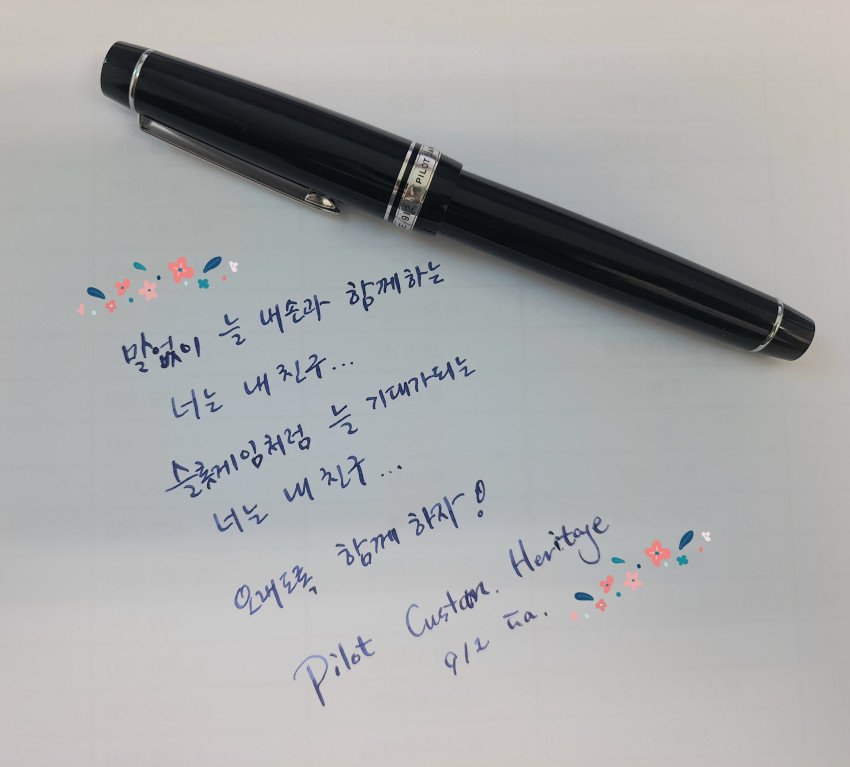 PILOT
912
말없이 늘 내손과 함께하는
너는 내 친구...
슬롯게임처럼 늘 기대가되는
너는 내 친구...
오래도록 함께 하자!
Pilot Custom. Heritage
912